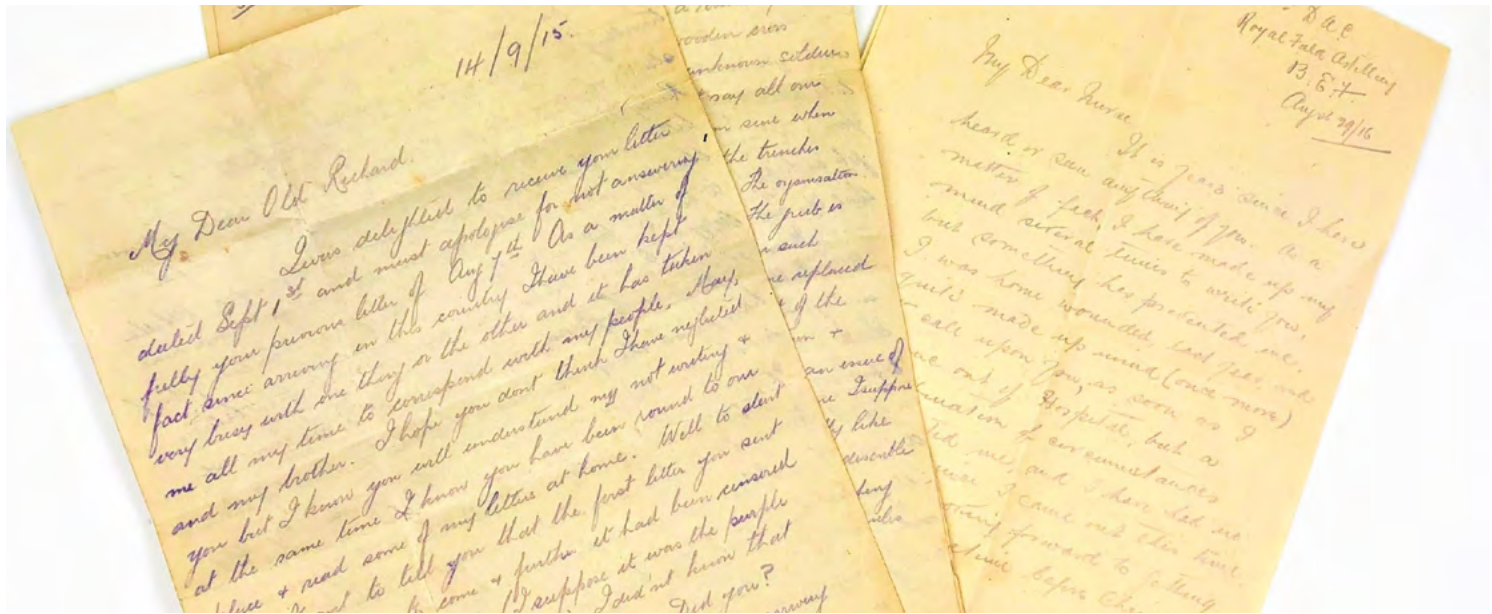 14/9/15.
My Dear Old Richard.
I was delighted to receive your letter
dated Sept 1st and must apologise for not answering
fully your previous letter of Aug 7th. As a matter of
fact since arriving in this country I have been kept
very busy with one thing or the other and it has taken
me all my time to correspond with my people, May,
and my brother. I hope you dont think I have neglected
you but I know you will understand my not writing &
at the same time I know you have been round to our
place & read some of my letters at home. Well to start
want to tell you that the first letter you sent
to come & further it had been censored
I suppose it was the purple
I didn't know that
Did you?
wooden cross
unknown soldier
say all our
seen when
the trenches
The organisation
The grub is
such
replaced
of the
+
an issue of
I suppose
like
describe
D A C
Royal Field Artillery
B.E.F.
Augst 29/16
My Dear Nurse
It is years since I have
heard or seen anything of you. As a
matter of fact, I have made up my
mind several times to write you,
but something has prevented me.
I was home wounded, last year, and
quite made up mind (once more)
call upon you, as soon as I
out of Hospital, but a
of circumstances
me, and I have had no
I came out this time
forward to getting
time before